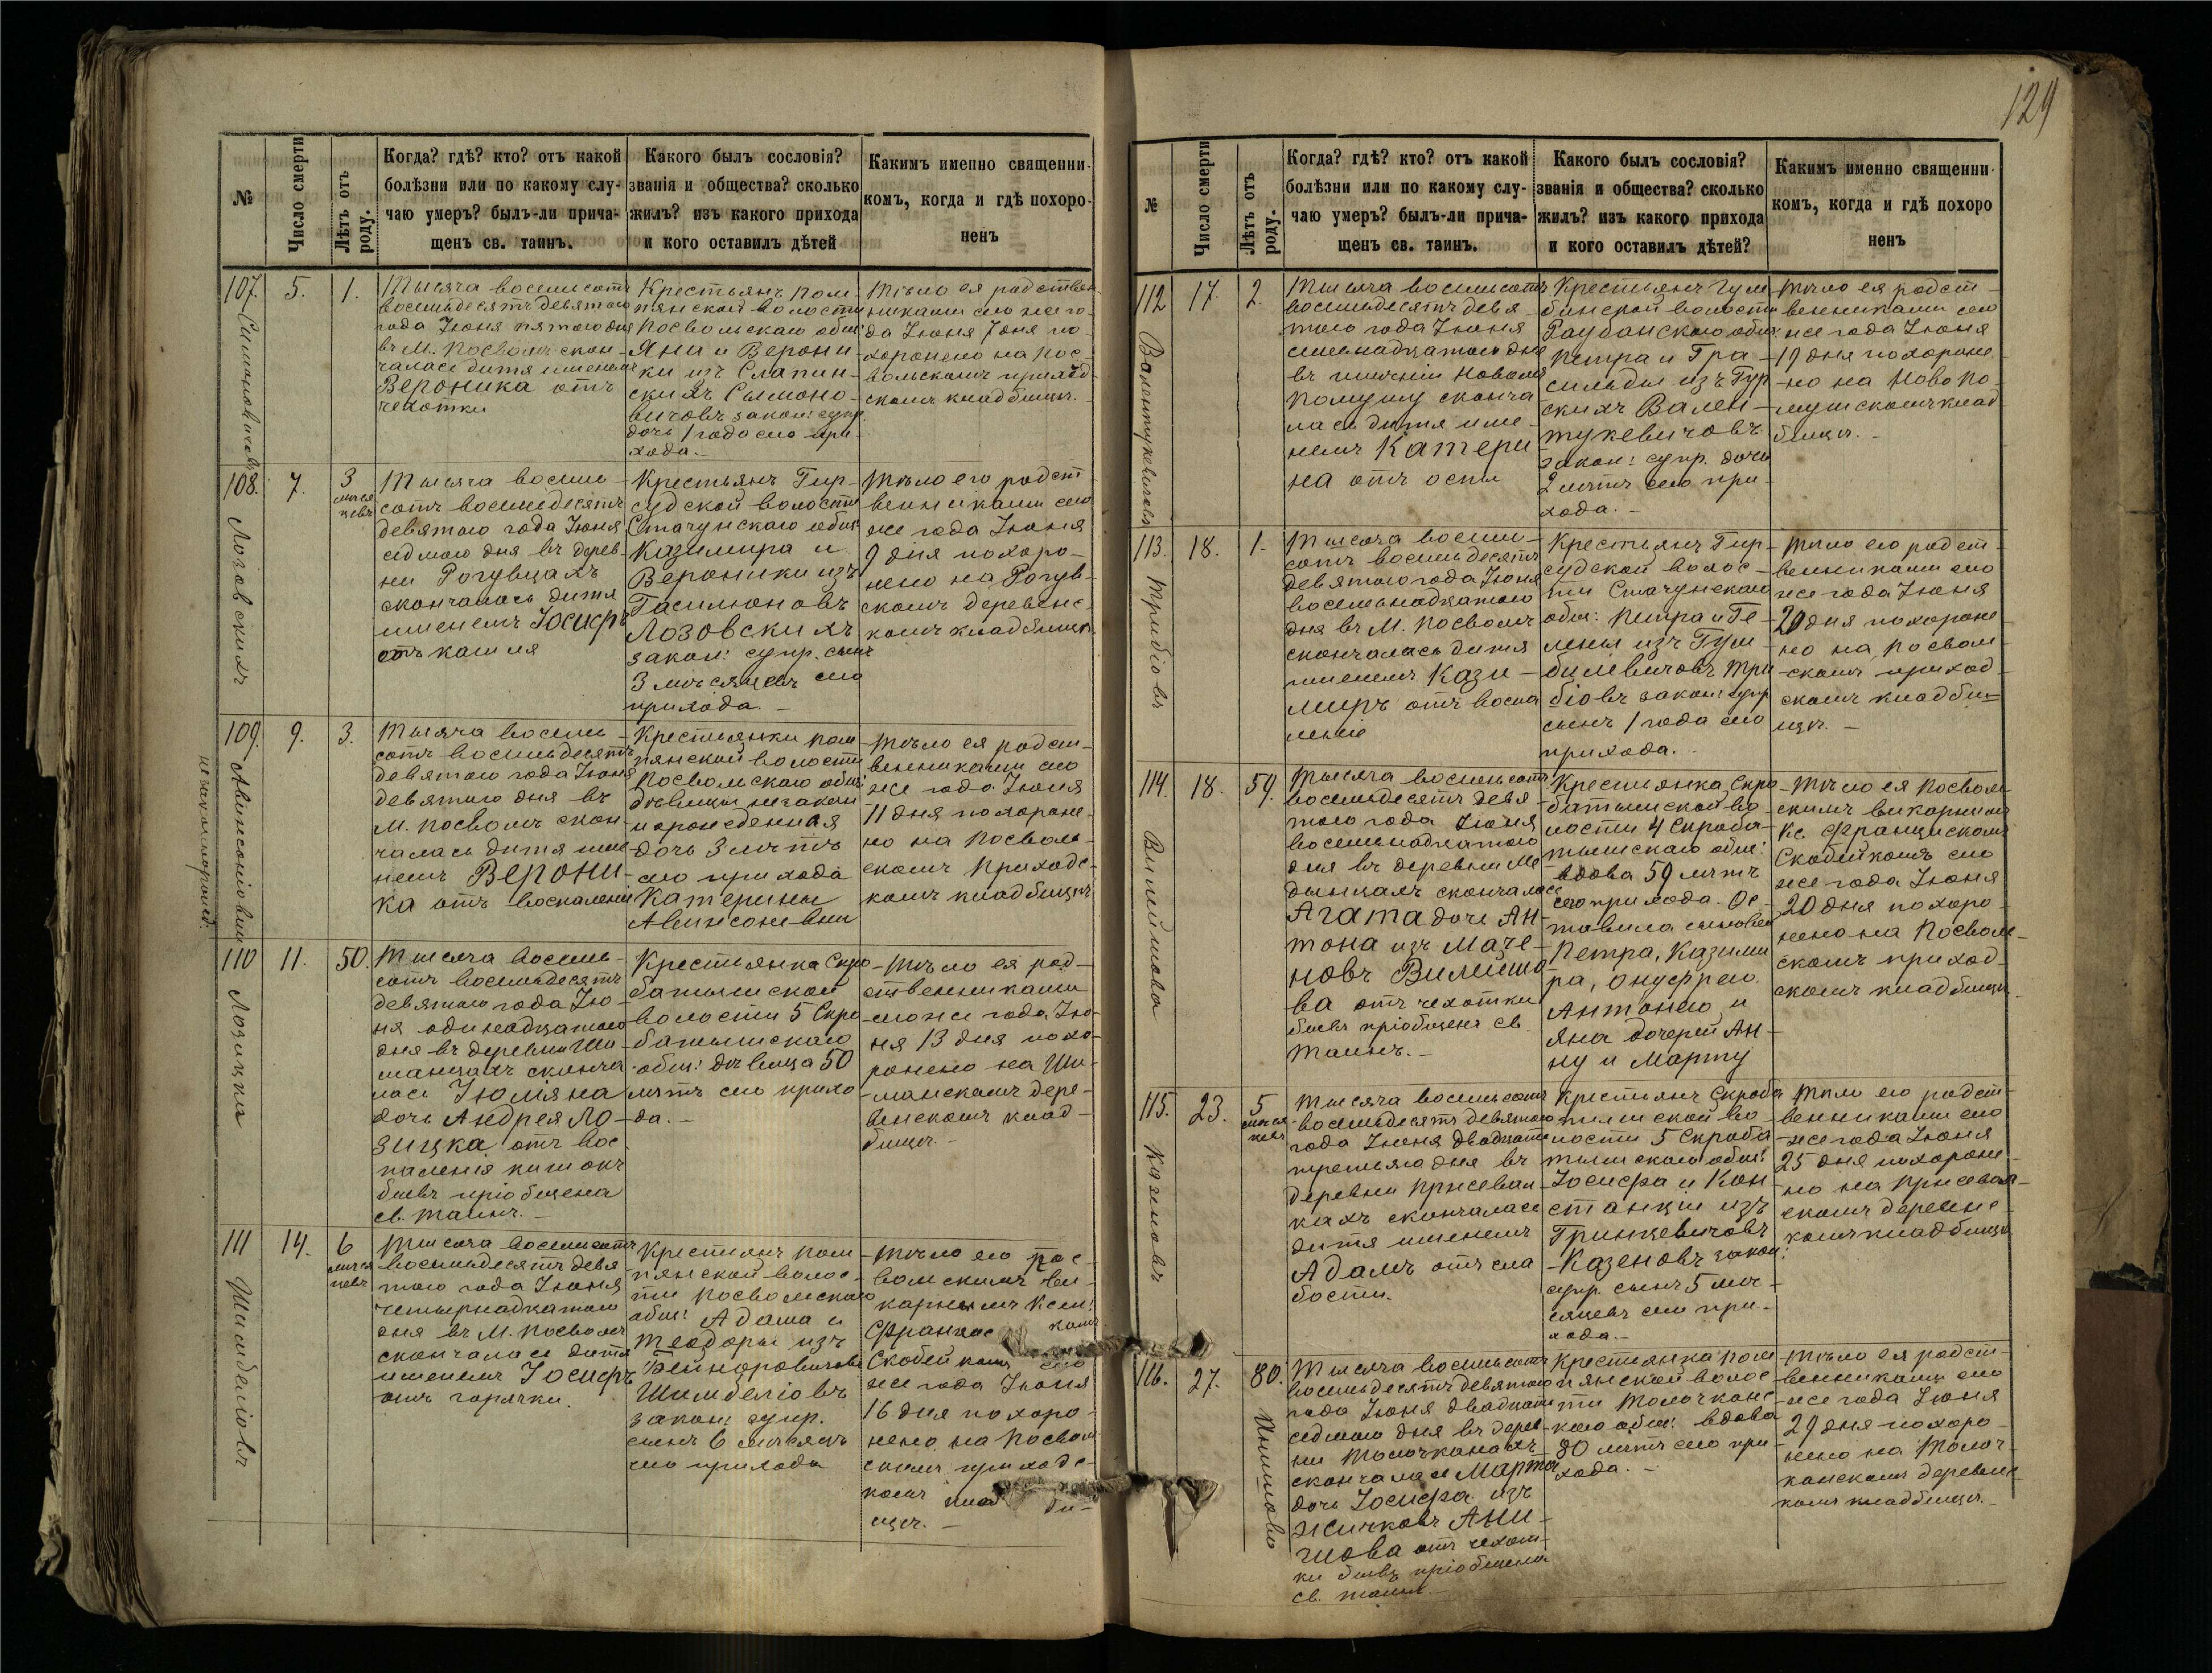 129
№
Число смерти
Лѣтъ отъ роду.
Когда? гдѣ? кто? отъ какой
болѣзни или по какому слу-
чаю умеръ? былъ-ли прича-
щенъ св. таинъ.
Какого былъ сословія?
званія и общества? сколько
жилъ? изъ какого прихода
и кого оставилъ дѣтей
Какимъ именно священни-
комъ, когда и гдѣ похоро-
ненъ
107.
Симоновичевъ
5.
1.
Тысяча восемьсотъ
восемьдесятъ девятаго
года Іюня пятаго дня
въ М. Посволѣ скон-
чалась дитя именемъ
Вероника отъ
чехотки
Крестьянъ Пом-
пянской волости
Посвольскаго общ:
Яна и Верони-
ки изъ Слапин-
скихъ Сымоно-
вичовъ закон: супр.
дочь 1 года сего при-
хода.-
Тѣло ея родствен-
никами сего же го-
да Іюня 7 дня по-
хоронено на Пос-
вольскомъ приход-
скомъ кладбищѣ.
108.
Лозовскихъ
7.
3
мѣся
цевъ
Тысяча восемь-
сотъ восемьдесятъ
девятаго года Іюня
седмаго дня въ дерев-
ни Рогувцахъ
скончалась дитя
именемъ Іосифъ
отъ кашля
Крестьянъ Гир-
судской волости
Стачунскаго общ:
Казимира и
Вероники изъ
Гасилюновъ
Лозовскихъ
закон: супр. сынъ
3 мѣсяцевъ сего
прихода.-
Тѣло его родст-
венниками сего
же года Іюня
9 дня похоро-
нено на Рогув-
скомъ деревенс-
комъ кладбищѣ.
109.
незаконнорожд.
9.
3.
Тысяча восемь-
сотъ восемьдесятъ
девятаго года Іюня
девятаго дня въ
М. Посволѣ скон-
чалась дитя име-
немъ Верони-
ка отъ воспаленія
Крестьянки Пом-
пянской волости
Посвольскаго общ:
дѣвицы незакон-
норожденная
дочь 3 лѣтъ
сего прихода
Катерины
Авинсоневны
Тѣло ея родст-
венниками сего
же года Іюня
11 дня похороне-
но на Посволь-
скомъ Приходс-
комъ кладбищѣ
110
Лозицка
11.
50.
Тысяча восемь-
сотъ восемьдесятъ
девятаго года Ію-
ня одинадцатаго
дня въ деревни Ши-
манцахъ сконча-
лась Іюліяна
дочь Андрея Ло-
зицка отъ вос-
паленія кишокъ
бывъ пріобщена
св. таинъ.-
Крестьянка Скро-
батышской
волости 5 Скро-
батышскаго
общ: дѣвица 50
лѣтъ сего прихо-
да.-
Тѣло ея род-
ственниками
сего же года Ію-
ня 13 дня похо-
ронено на Ши-
манскомъ дере-
венскомъ клад-
бищѣ.-
111
Шимбеліовъ
14.
6
мѣся
цевъ
Тысяча восемьсотъ
восемьдесятъ девя-
таго года Іюня
четырнадцатаго
дня въ М. Посволѣ
скончалась дитя
именемъ Іосифъ
отъ горячки.
Крестьянъ Пом-
пянской волос-
ти Посвольскаго
общ: Адама и
Теодоры изъ
Шимбеліовъ
закон: супр.
сынъ 6 мѣсяцъ
сего прихода
Тѣло его Пос-
вольскимъ ви-
карнымъ Ксен:
Скобейкомъ сего
же года Іюня
16 дня похоро-
нено на Посволь-
скомъ приходс-
комъ клад би-
щѣ.-
№
Число смерти
Лѣтъ отъ роду.
Когда? гдѣ? кто? отъ какой
болѣзни или по какому слу-
чаю умеръ? былъ-ли прича-
щенъ св. таинъ.
Какого былъ сословія?
званія и общества? сколько
жилъ? изъ какого прихода
и кого оставилъ дѣтей?
Какимъ именно священни-
комъ, когда и гдѣ похоро
ненъ
112
Валентукевичевъ
17.
2.
Тысяча восемьсотъ
восемьдесятъ девя-
таго года Іюня
семнадцатаго дня
въ имѣніи Новомъ
Помушу сконча-
лась дитя име-
немъ Катери-
на отъ оспы
Крестьянъ Гум-
бинской волости
Раубанскаго общ:
Петра и Гра-
сильды изъ Гур-
скихъ Вален-
тукевичовъ
закон: супр. дочь
2 лѣтъ сего при-
хода.-
Тѣло ея родст-
венниками сего
же года Іюня
19 дня похороне-
но на Ново По-
мушскомъ клад
бищѣ.-
113.
Трибіовъ
18.
1.
Тысяча восемь-
сотъ восемьдесятъ
девятаго года Іюня
восемьнадцатаго
дня въ М. Посволѣ
скончалась дитя
именемъ Кази-
миръ отъ воспа
леніе
Крестьянъ Гир-
судской волос-
ти Стачунскаго
общ: Петра и Ге-
лены изъ Гум-
билевичовъ Три-
біовъ закон: супр.
сынъ 1 года сего
прихода.-
Тѣло его родст-
венниками сего
же года Іюня
20 дня похороне-
но на Посволь-
скомъ приход-
скомъ кладби=
щѣ.-
114.
Вилейшова
18.
59.
Тысяча восемьсотъ
восемьдесятъ девя-
таго года Іюня
восемьнадцатаго
дня въ деревни Ме-
дынцахъ скончалась
Агата дочь Ан-
тона изъ Маче-
новъ Вилейшо-
ва отъ чехотки
бывъ пріобщена св.
таинъ.-
Крестьянка Скро-
батышской во-
лости 4 Скроба-
тышскаго общ:
вдова 59 лѣтъ
сего прихода. Ос-
тавила сыновей
Петра, Казими-
ра, Онуфрею
Антонею и
Яна дочерей Ан-
ну и Марту
Тѣло ея Посволь-
скимъ викарнымъ
Кс. Францискомъ
Скобейкомъ сего
же года Іюня
20 дня похоро-
нено на Посволь-
скомъ приход-
скомъ кладбищѣ
115.
Казеновъ
23.
5
мѣся
цевъ
Тысяча восемьсотъ
восемьдесятъ девятаго
года Іюня двадцать
третьяго дня въ
деревни Присевал-
кахъ скончалась
дитя именемъ
Адамъ отъ сла-
бости.
Крестьянъ Скроба
тышской во-
лости 5 Скроба-
тышскаго общ:
Іосифа и Кон-
станціи изъ
Гринцевичовъ
Казеновъ закон:
супр. сынъ 5 мѣ-
сяцевъ сего при-
хода.-
Тѣло его родст-
венниками сего
же года Іюня
25 дня похороне-
но на Присеваль-
скомъ деревенс-
комъ кладбищѣ
116.
27.
80.
Тысяча восемьсотъ
восемьдесятъ девятаго
года Іюня двадцать
седмаго дня въ дерев-
ни Толочканахъ
скончалась Марта
дочь Іосифа изъ
отъ чехот-
ки бывъ пріобщена
св. таинъ.-
Крестьянка Пом-
пянской волос-
ти Толочканс-
каго общ: вдова
80 лѣтъ сего при-
хода.-
Тѣло ея родст-
венниками сего
же года Іюня
29 дня похоро-
нено на Толоч-
канскомъ деревенс-
комъ кладбищѣ.-